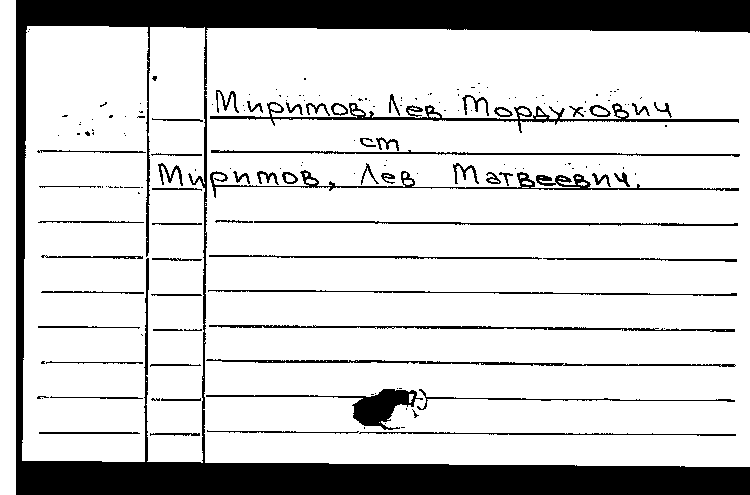 Миримов, Лев Мордухович
см.
Миримов, Лев Матвеевич.